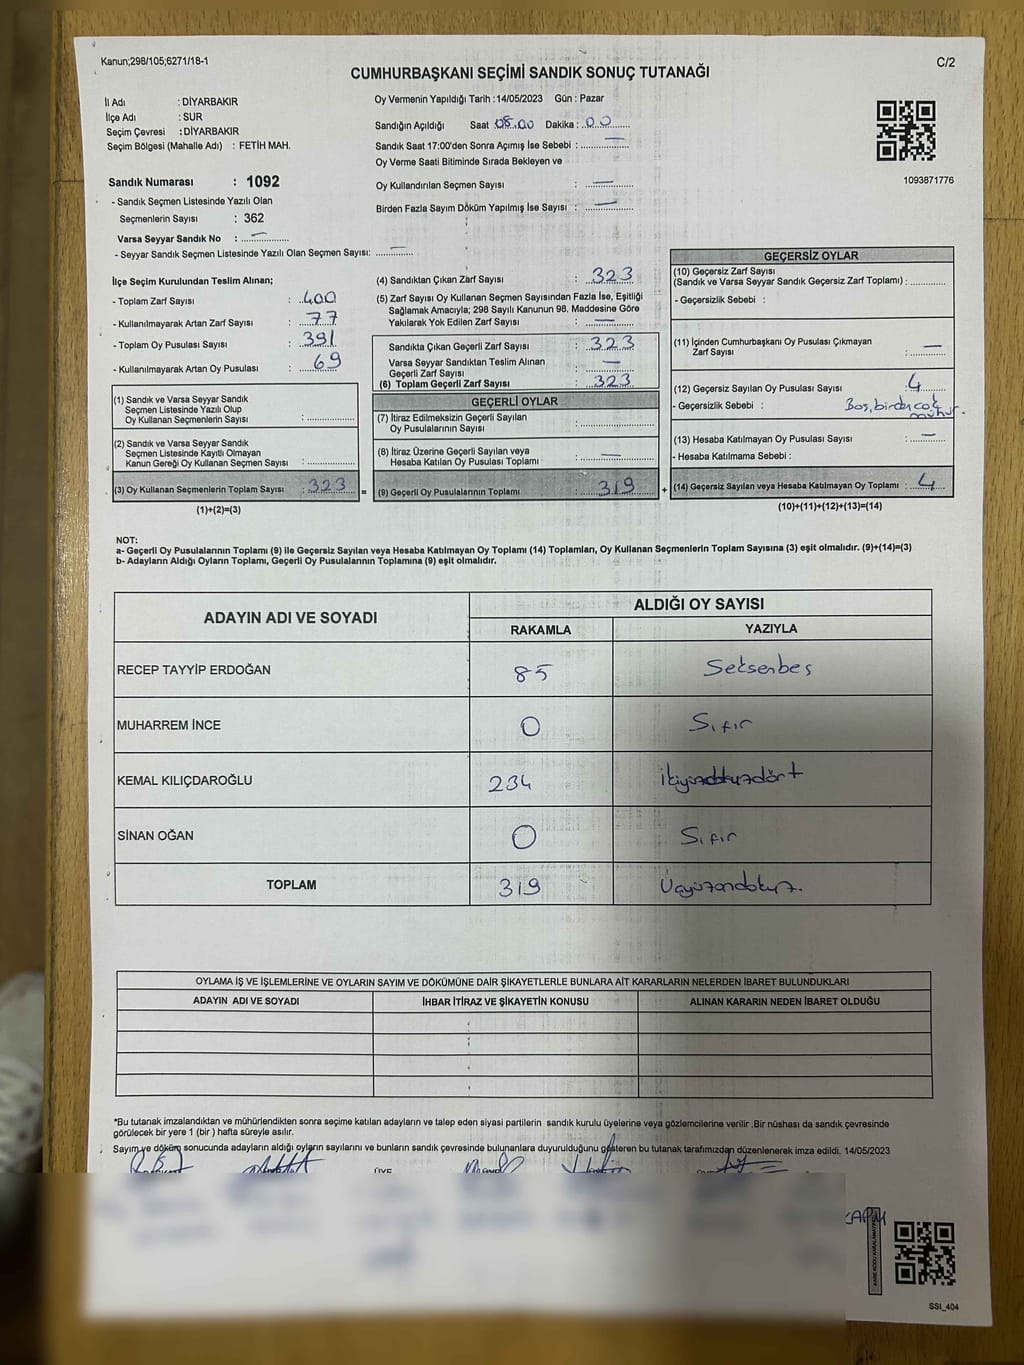 Kanun;298/105;6271/18-1
C/2
CUMHURBAŞKANI SEÇİMİ SANDIK SONUÇ TUTANAĞI
İl Adı : DİYARBAKIR
İlçe Adı : SUR
Seçim Çevresi : DİYARBAKIR
Seçim Bölgesi (Mahalle Adı) : FETİH MAH.
Sandık Numarası : 1092
- Sandık Seçmen Listesinde Yazılı Olan
Seçmenlerin Sayısı : 362
Varsa Seyyar Sandık No : —
- Seyyar Sandık Seçmen Listesinde Yazılı Olan Seçmen Sayısı: —
Oy Vermenin Yapıldığı Tarih :14/05/2023 Gün : Pazar
Sandığın Açıldığı Saat 08.00 Dakika : 00
Sandık Saat 17:00'den Sonra Açımış İse Sebebi : —
Oy Verme Saati Bitiminde Sırada Bekleyen ve
Oy Kullandırılan Seçmen Sayısı : —
Birden Fazla Sayım Döküm Yapılmış İse Sayısı : —
1093871776
İlçe Seçim Kurulundan Teslim Alınan;
- Toplam Zarf Sayısı : 400
- Kullanılmayarak Artan Zarf Sayısı : 77
- Toplam Oy Pusulası Sayısı : 391
- Kullanılmayarak Artan Oy Pusulası : 69
(1) Sandık ve Varsa Seyyar Sandık
Seçmen Listesinde Yazılı Olup
Oy Kullanan Seçmenlerin Sayısı :
(2) Sandık ve Varsa Seyyar Sandık
Seçmen Listesinde Kayıtlı Olmayan
Kanun Gereği Oy Kullanan Seçmen Sayısı :
(3) Oy Kullanan Seçmenlerin Toplam Sayısı : 323 =
(1)+(2)=(3)
(4) Sandıktan Çıkan Zarf Sayısı : 323
(5) Zarf Sayısı Oy Kullanan Seçmen Sayısından Fazla İse, Eşitliği
Sağlamak Amacıyla; 298 Sayılı Kanunun 98. Maddesine Göre
Yakılarak Yok Edilen Zarf Sayısı : —
Sandıkta Çıkan Geçerli Zarf Sayısı : 323
Varsa Seyyar Sandıktan Teslim Alınan
Geçerli Zarf Sayısı : —
(6) Toplam Geçerli Zarf Sayısı : 323
GEÇERLİ OYLAR
(7) İtiraz Edilmeksizin Geçerli Sayılan
Oy Pusulalarının Sayısı :
(8) İtiraz Üzerine Geçerli Sayılan veya
Hesaba Katılan Oy Pusulası Toplamı : —
(9) Geçerli Oy Pusulalarının Toplamı : 319 +
GEÇERSİZ OYLAR
(10) Geçersiz Zarf Sayısı
(Sandık ve Varsa Seyyar Sandık Geçersiz Zarf Toplamı) :
- Geçersizlik Sebebi :
(11) İçinden Cumhurbaşkanı Oy Pusulası Çıkmayan
Zarf Sayısı : —
(12) Geçersiz Sayılan Oy Pusulası Sayısı : 4
- Geçersizlik Sebebi : Boş, birden çok mühür.
(13) Hesaba Katılmayan Oy Pusulası Sayısı : —
- Hesaba Katılmama Sebebi :
(14) Geçersiz Sayılan veya Hesaba Katılmayan Oy Toplamı : 4
(10)+(11)+(12)+(13)=(14)
NOT:
a- Geçerli Oy Pusulalarının Toplamı (9) ile Geçersiz Sayılan veya Hesaba Katılmayan Oy Toplamı (14) Toplamları, Oy Kullanan Seçmenlerin Toplam Sayısına (3) eşit olmalıdır. (9)+(14)=(3)
b- Adayların Aldığı Oyların Toplamı, Geçerli Oy Pusulalarının Toplamına (9) eşit olmalıdır.
ADAYIN ADI VE SOYADI ALDIĞI OY SAYISI
RAKAMLA YAZIYLA
RECEP TAYYİP ERDOĞAN 85 Seksenbeş
MUHARREM İNCE 0 Sıfır
KEMAL KILIÇDAROĞLU 234
SİNAN OĞAN 0 Sıfır
TOPLAM 319 Üçyüzondokuz.
OYLAMA İŞ VE İŞLEMLERİNE VE OYLARIN SAYIM VE DÖKÜMÜNE DAİR ŞİKAYETLERLE BUNLARA AİT KARARLARIN NELERDEN İBARET BULUNDUKLARI
ADAYIN ADI VE SOYADI İHBAR İTİRAZ VE ŞİKAYETİN KONUSU ALINAN KARARIN NEDEN İBARET OLDUĞU
*Bu tutanak imzalandıktan ve mühürlendikten sonra seçime katılan adayların ve talep eden siyasi partilerin sandık kurulu üyelerine veya gözlemcilerine verilir .Bir nüshası da sandık çevresinde
görülecek bir yere 1 (bir ) hafta süreyle asılır.
Sayım ve döküm sonucunda adayların aldığı oyların sayılarını ve bunların sandık çevresinde bulunanlara duyurulduğunu gösteren bu tutanak tarafımızdan düzenlenerek imza edildi. 14/05/2023
ÜYE
SSI_404